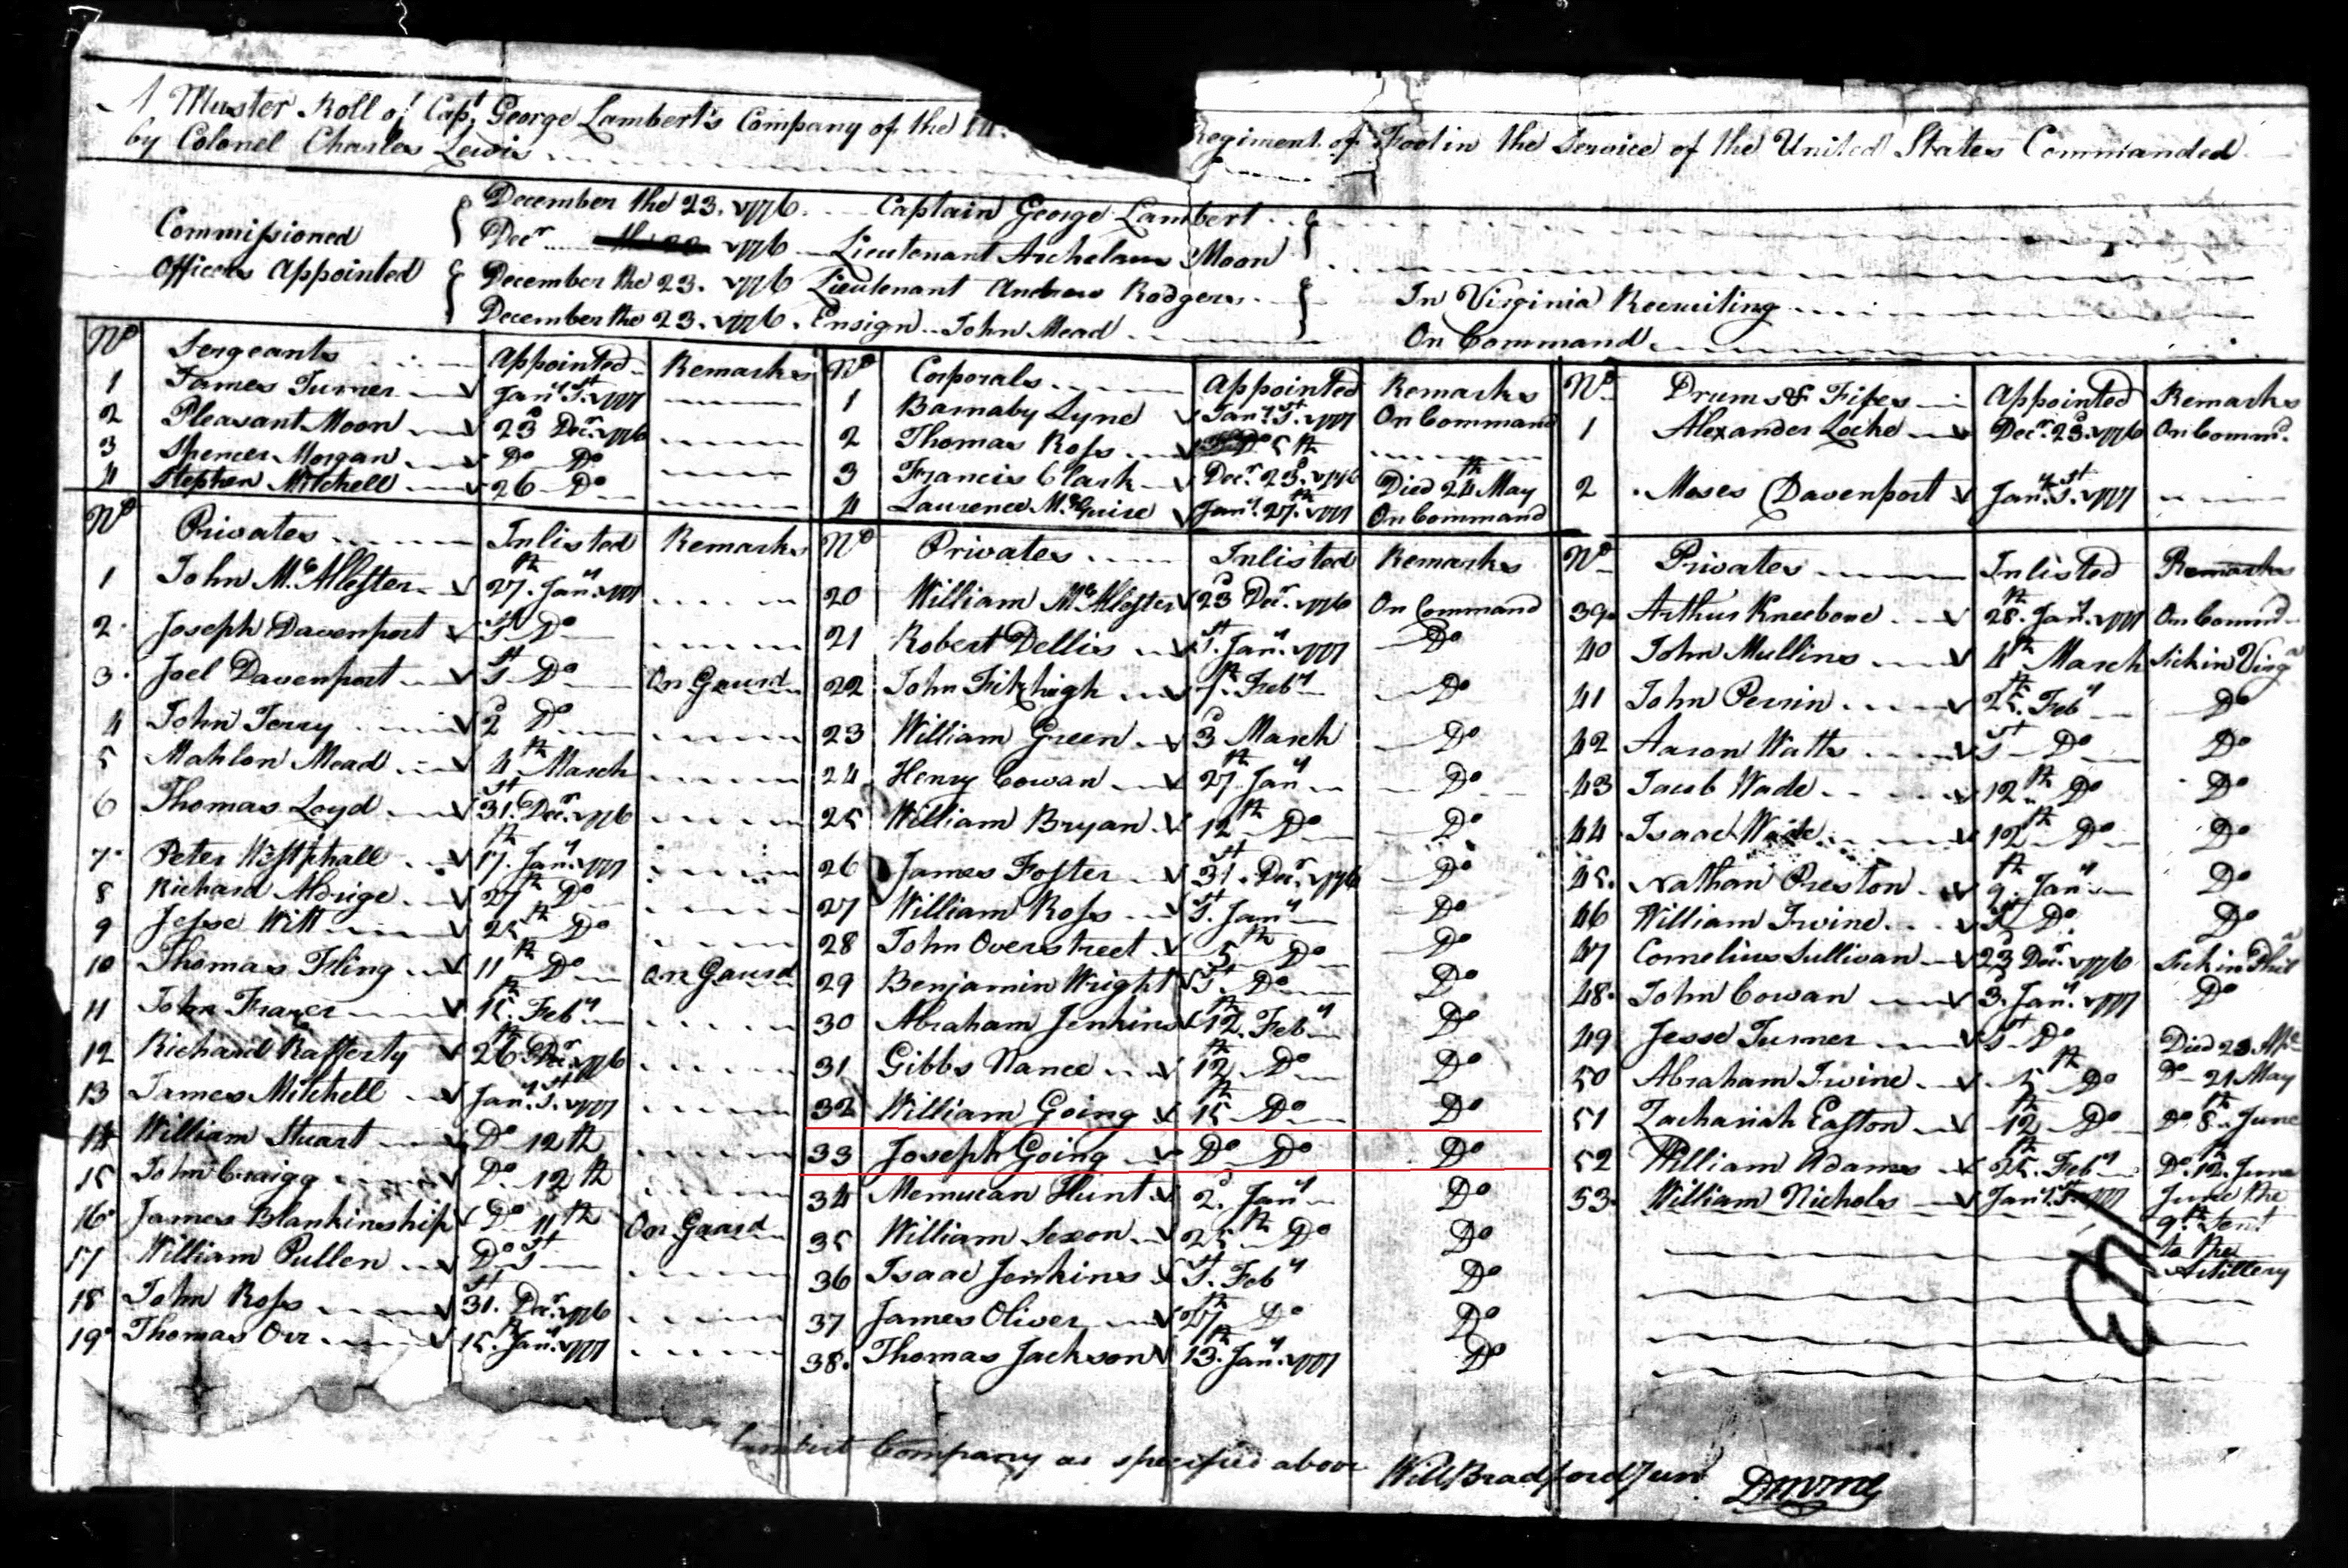 A Muster Roll of Capt George Lambert's Company of the 14 Regiment of Foot in the Service of the United States Commanded
by Colonel Charles Lewis
Commissioned Officers Appointed
December the 23. 1776. Captain George Lambert
Decr 1776 Lieutenant Archelaus Moon
December the 23. 1776 Lieutenant Andrew Rodgers In Virginia Recruiting
December the 23. 1776. Ensign John Mead On Command
No Sergeants Appointed Remarks
1 James Turner Jany 1st 1777
2 Pleasant Moon 23d Decr 1776
3 Spencer Morgan Do Do
4 Stephen Mitchell 26 Do
No Corporals Appointed Remarks
1 Barnaby Lyne Jany 1st 1777 On Command
2 Thomas Ross Do 5th
3 Francis Clark Decr 23d 1776 Died 24th May
4 Laurence McGuire Jany 27th 1777 On Command
No Drums & Fifes Appointed Remarks
1 Alexander Locke Decr 23d 1776 On Commd.
2 Moses Davenport Jany 1st 1777
No Privates Inlisted Remarks
1 John McAllester 27th Jany 1777
2 Joseph Davenport 1st Do
3 Joel Davenport 1st Do On Gaurd
4 John Terry 2d Do
5 Mahlon Mead 4th March
6 Thomas Loyd 31st Decr 1776
7 Peter Westphall 17th Jany 1777
8 Richard Aldrige 27th Do
9 Jesse Witt 25th Do
10 Thomas Fling 11th Do On Gaurd
11 John Frazer 15th Feby
12 Richard Rafferty 26th Decr 1776
13 James Mitchell Jany 1st 1777
14 William Stuart Do 12th
15 John Craigg Do 12th
16 James Blankinship Do 11th On Gaard
17 William Pullen Do 1st
18 John Ross 31st Decr 1776
19 Thomas Orr 15th Jany 1777
No Privates Inlisted Remarks
20 William McAllester 23d Decr 1776 On Command
21 Robert Dellis 1st Jany 1777 Do
22 John Fitzhigh Feby Do
23 William Green 3d March Do
24 Henry Cowan 27th Jany Do
25 William Bryan 12th Do Do
26 James Foster 31st Decr 1776 Do
27 William Ross 1st Jany Do
28 John Overstreet 5th Do Do
29 Benjamin Wright 1st Do Do
30 Abraham Jenkins 12th Feby Do
31 Gibbs Nance 12th Do Do
32 William Going 15th Do Do
33 Joseph Going Do Do Do
34 Memucan Hunt 2d Jany Do
35 William Sexon 25th Do Do
36 Isaac Jenkins 1st Feby Do
37 James Oliver 27th Do Do
38 Thomas Jackson 13th Jany 1777 Do
No Privates Inlisted Remarks
39 Arthur Kneebone 28th Jany 1777 On Commd
40 John Mullins 4th March Sick in Virga
41 John Perrin 25th Feby Do
42 Aaron Watts 1st Do Do
43 Jacob Wade 12th Do Do
44 Isaac Wade 12th Do Do
45 Nathan Preston 9th Jany Do
46 William Irwine 1st Do Do
47 Cornelius Sullivan 23d Decr 1776 Sick in Phila
48 John Cowan 3. Jany 1777 Do
49 Jesse Turner 1st Do Died 23 Apl
50 Abraham Irwine 5th Do Do 21 May
51 Zachariah Easton 12th Do Do 8th June
52 William Adams 25th Feby Do 12th June
53 William Nichols Jany 1st 1777 June the 9th Sent to the Artillery
Lambert Company as specified above Will Bradford Jun D M M G